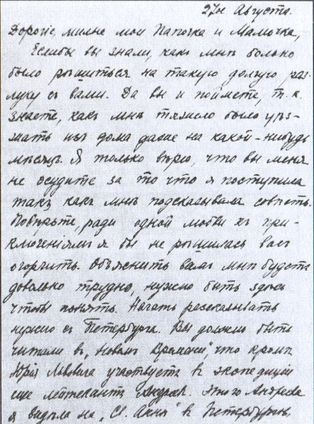 27го Августа.
Дорогiе, милые мои Папочка и Мамочка,
Еслибы вы знали, какъ мнѣ больно
было рѣшиться на такую долгую раз-
луку съ вами. Да вы и поймете, т. к.
знаете, какъ мнѣ тяжело было уѣз-
жать изъ дома даже на какой-нибудь
мѣсяцъ. Я только вѣрю, что вы меня
не осудите за то что я поступила
такъ какъ мнѣ подсказывала совѣсть.
Повѣрьте, ради одной любви къ при-
ключенiямъ я бы не рѣшилась васъ
огорчить. Объяснить вамъ мнѣ будетъ
довольно трудно, нужно быть здѣсь
чтобы понять. Начать разсказывать
нужно съ Петербурга. Вы должно быть
читали въ "Новомъ Времени", что кромѣ
Юрiя Львовича участвуетъ въ экспедицiи
еще лейтенантъ Андреевъ. Этого Андреева
я видѣла на "Св. Аннѣ" въ Петербургѣ